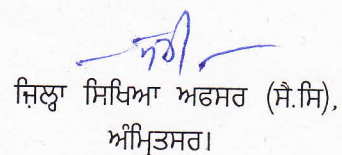 ਸਹੀ
ਜ਼ਿਲ੍ਹਾ ਸਿਖਿਆ ਅਫਸਰ (ਸੈ.ਸਿ),
ਅੰਮ੍ਰਿਤਸਰ।